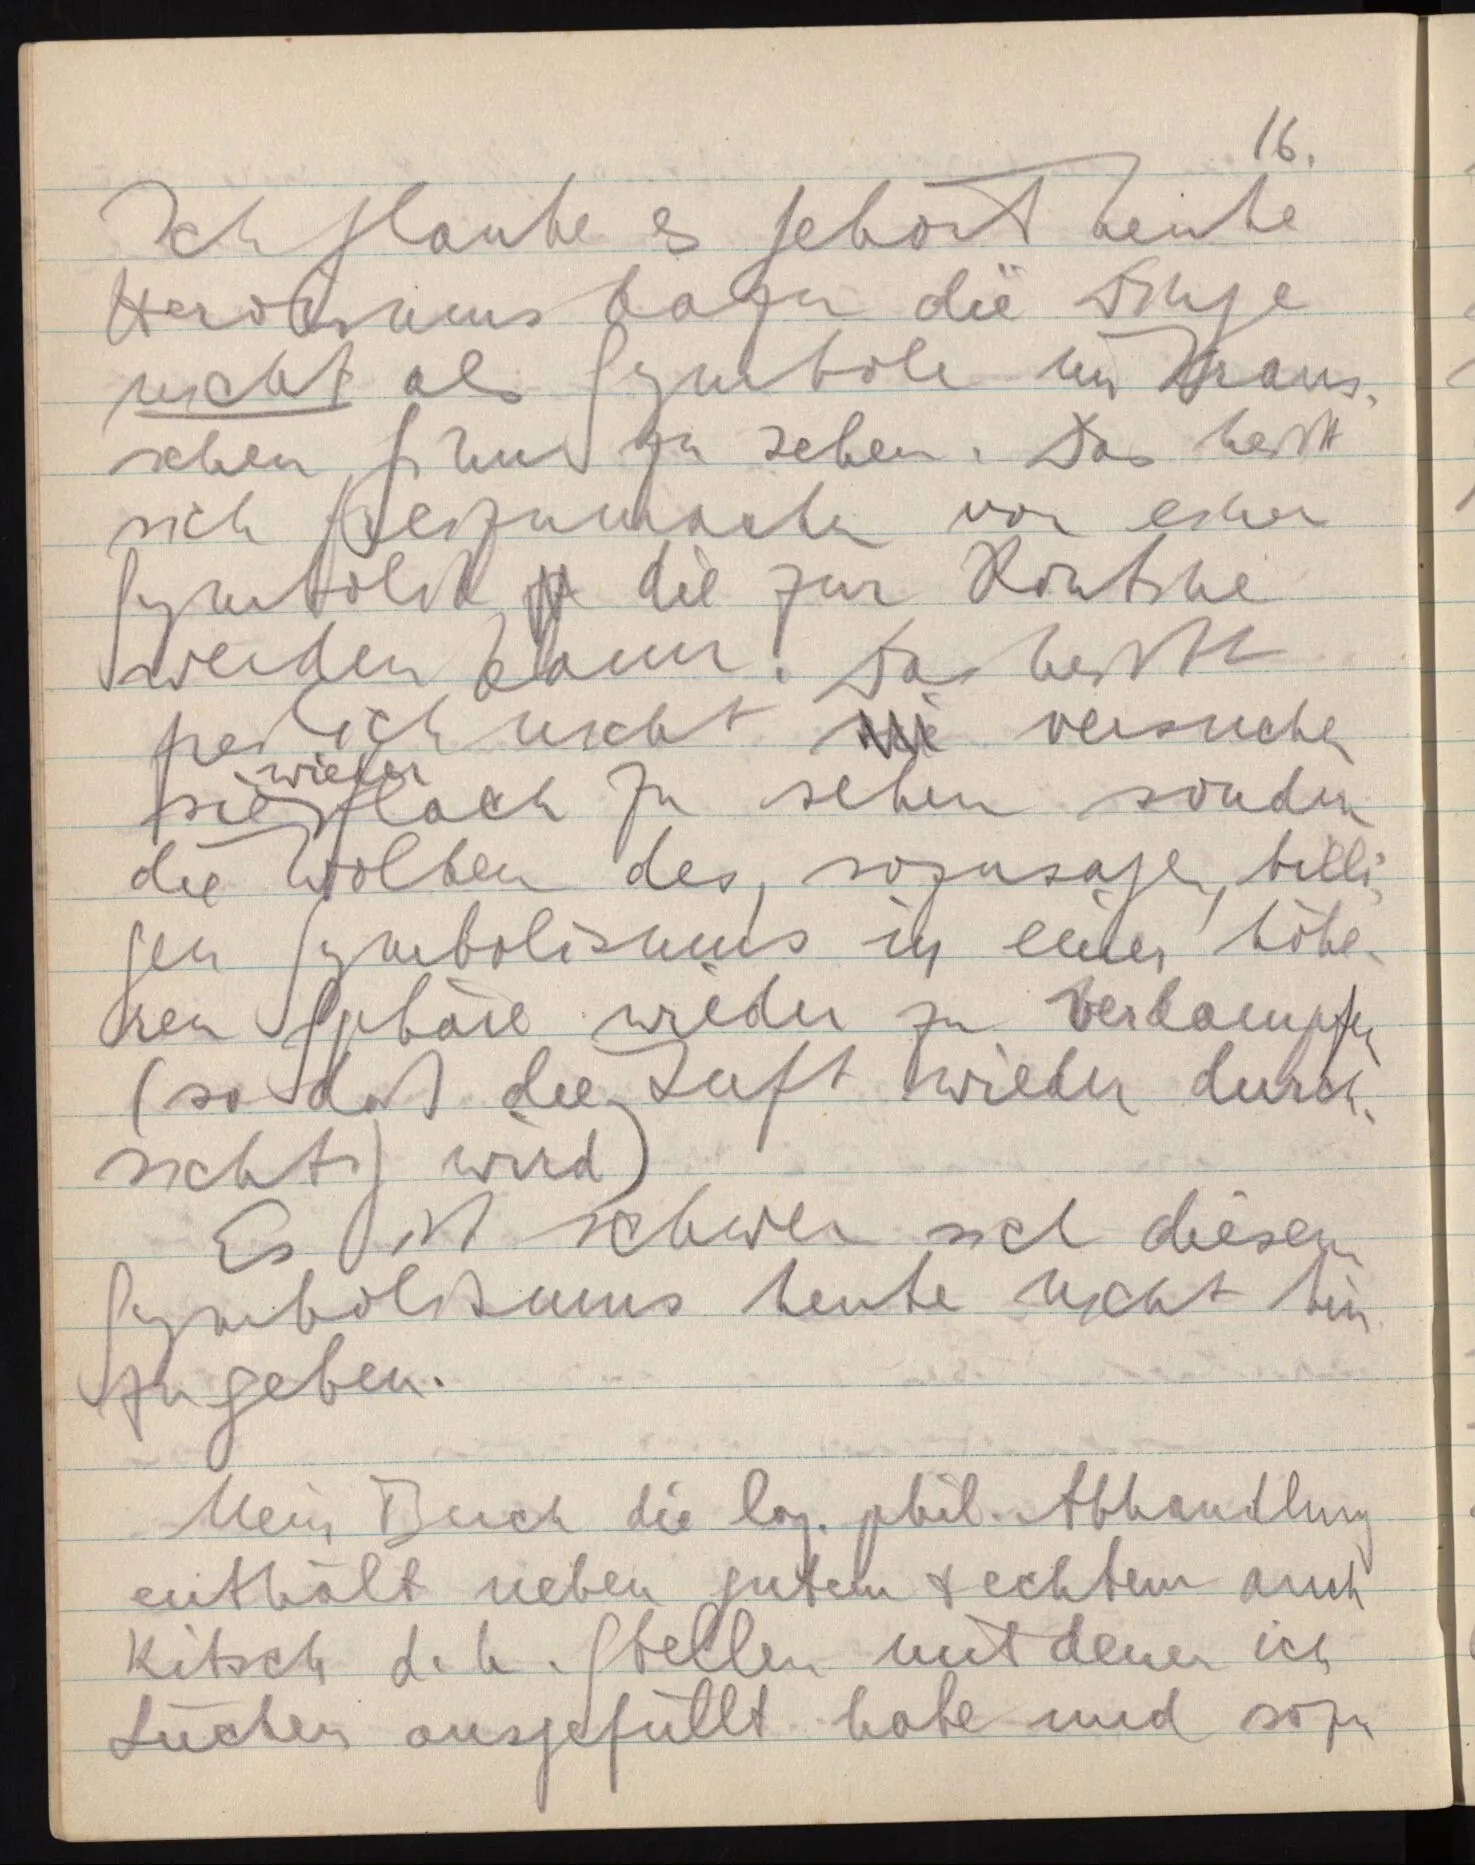 16.
Ich glaube es gehört heute
Heroismus dazu die Dinge
nicht als Symbole im Kraus-
schen Sinn zu sehen. Das heißt
sich freizumachen von einer
Symbolik, die zur Routine
werden kann. Das heißt
freilich nicht versuchen
sie wieder flach zu sehen sondern
die Wolken des, sozusagen, billi-
gen Symbolismus in einer höhe-
ren Sphäre wieder zu verdampfen
(so daß die Luft wieder durch-
sichtig wird)
Es ist schwer sich diesem
Symbolismus heute nicht hin-
zugeben.
Mein Buch die log. phil. Abhandlung
enthält neben gutem & echtem auch
Kitsch d. h. Stellen mit denen ich
Lücken ausgefüllt habe und sozu